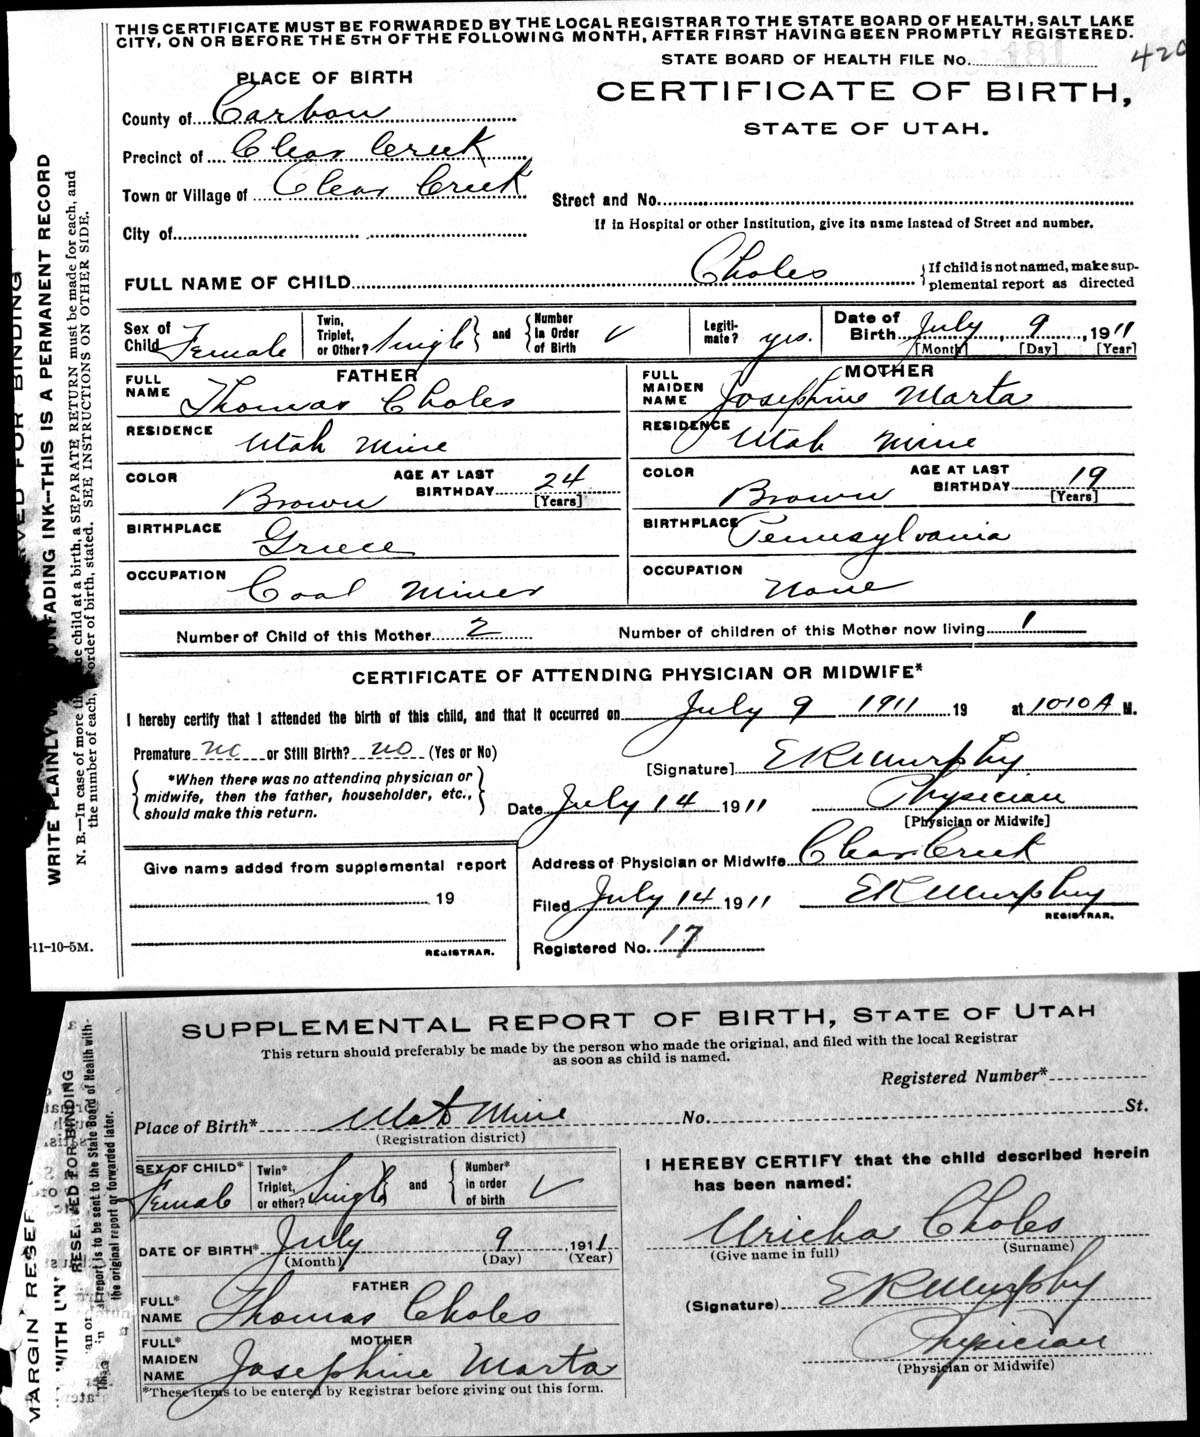 THIS CERTIFICATE MUST BE FORWARDED BY THE LOCAL REGISTRAR TO THE STATE BOARD OF HEALTH, SALT LAKE
CITY, ON OR BEFORE THE 5TH OF THE FOLLOWING MONTH, AFTER FIRST HAVING BEEN PROMPTLY REGISTERED.
STATE BOARD OF HEALTH FILE No. 181 420
PLACE OF BIRTH
CERTIFICATE OF BIRTH,
STATE OF UTAH.
County of Carbon
Precinct of Clear Creek
Town or Village of Clear Creek
Street and No.
City of
If in Hospital or other Institution, give its name instead of Street and number.
FULL NAME OF CHILD Choles { If child is not named, make sup-
plemental report as directed
Sex of Child Female
Twin, Triplet, or Other? Single } and { Number In Order of Birth √
Legiti-mate? yes.
Date of Birth July 9, 1911
[Month] [Day] [Year]
FATHER
FULL NAME Thomas Choles
RESIDENCE Utah Mine
COLOR Brown AGE AT LAST BIRTHDAY 24 [Years]
BIRTHPLACE Griece
OCCUPATION Coal Miner
MOTHER
FULL MAIDEN NAME Josephine Marta
RESIDENCE Utah Mine
COLOR Brown AGE AT LAST BIRTHDAY 19 [Years]
BIRTHPLACE Pennsylvania
OCCUPATION None
Number of Child of this Mother 2 Number of children of this Mother now living 1
CERTIFICATE OF ATTENDING PHYSICIAN OR MIDWIFE*
I hereby certify that I attended the birth of this child, and that it occurred on July 9 1911 19 at 1010 A M.
Premature no or Still Birth? no (Yes or No)
[Signature] E R Murphy
{ *When there was no attending physician or
midwife, then the father, householder, etc.,
should make this return. }
Date July 14 1911 Physician
[Physician or Midwife]
Give name added from supplemental report
19
REGISTRAR.
Address of Physician or Midwife Clear Creek
Filed July 14 1911 E R Murphy
REGISTRAR.
Registered No. 17
-11-10-5M.
WRITE PLAINLY UNFADING INK—THIS IS A PERMANENT RECORD
N. B.—In case of more child at a birth, a SEPARATE RETURN must be made for each, and
the number of each, order of birth, stated. SEE INSTRUCTIONS ON OTHER SIDE.
SUPPLEMENTAL REPORT OF BIRTH, STATE OF UTAH
This return should preferably be made by the person who made the original, and filed with the local Registrar
as soon as child is named.
Registered Number*
Place of Birth* Utah Mine No. St.
(Registration district)
SEX OF CHILD* Female
Twin* Triplet, or other? Single } and { Number* in order of birth √
DATE OF BIRTH* July 9 1911
(Month) (Day) (Year)
FATHER
FULL* NAME Thomas Choles
MOTHER
FULL* MAIDEN NAME Josephine Marta
*These items to be entered by Registrar before giving out this form.
I HEREBY CERTIFY that the child described herein
has been named:
Uricha Choles
(Give name in full) (Surname)
(Signature) E R Murphy
Physician
(Physician or Midwife)
RESERVED FOR BINDING
report is to be sent to the State Board of Health with
the original report or forwarded later.